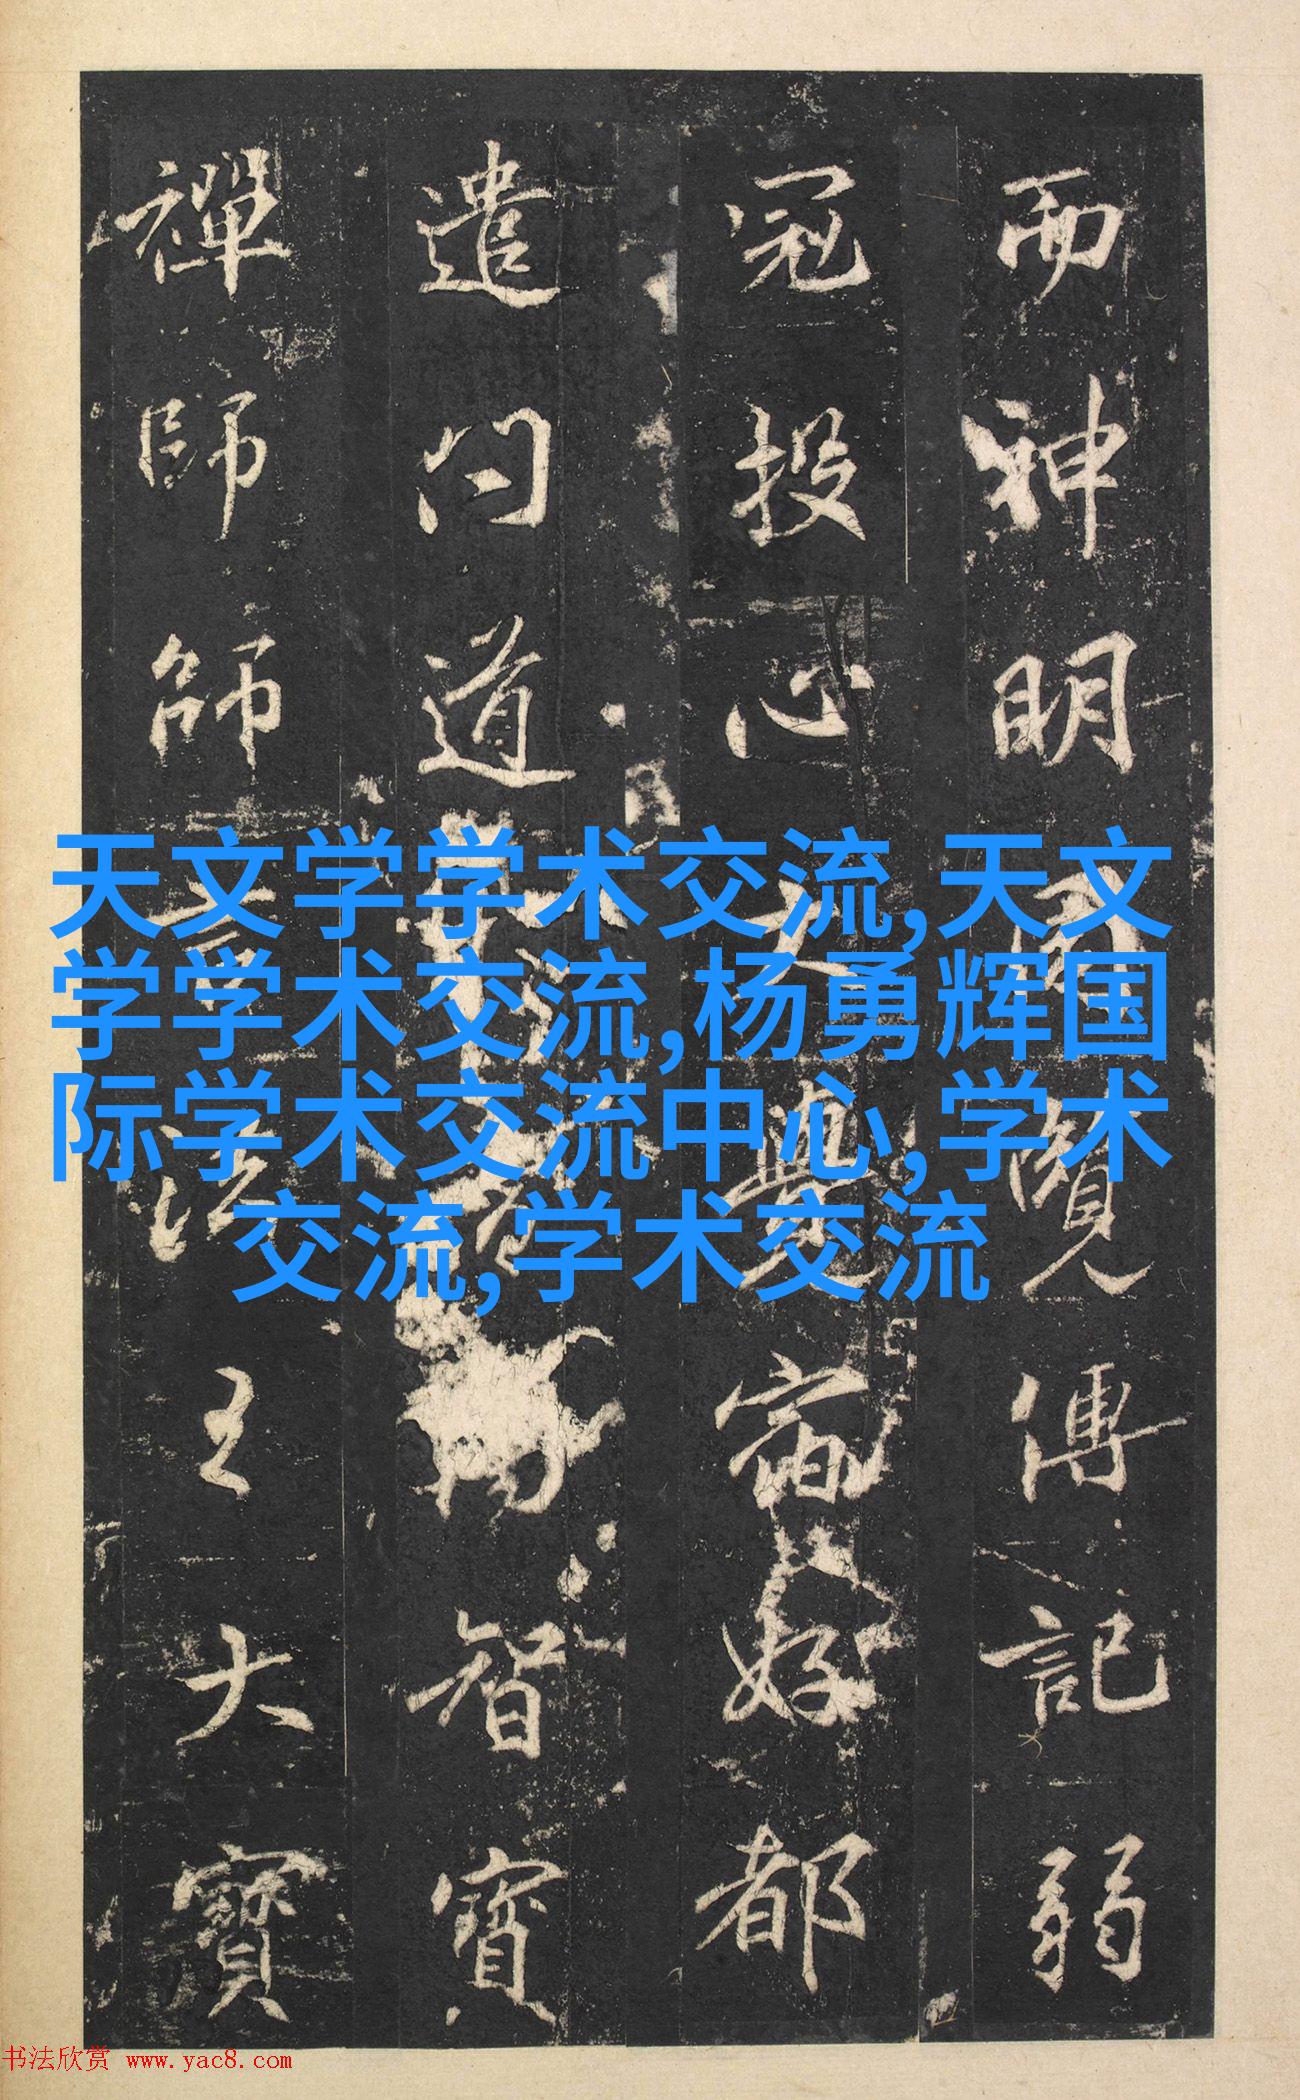 而神明覽傳記弱
冠投心大覺宿好都
遣問道智寶
禪師師法王大寶
天文学学术交流,天文
学学术交流,杨勇辉国
际学术交流中心,学术
交流,学术交流
书法欣赏 www.yac8.com